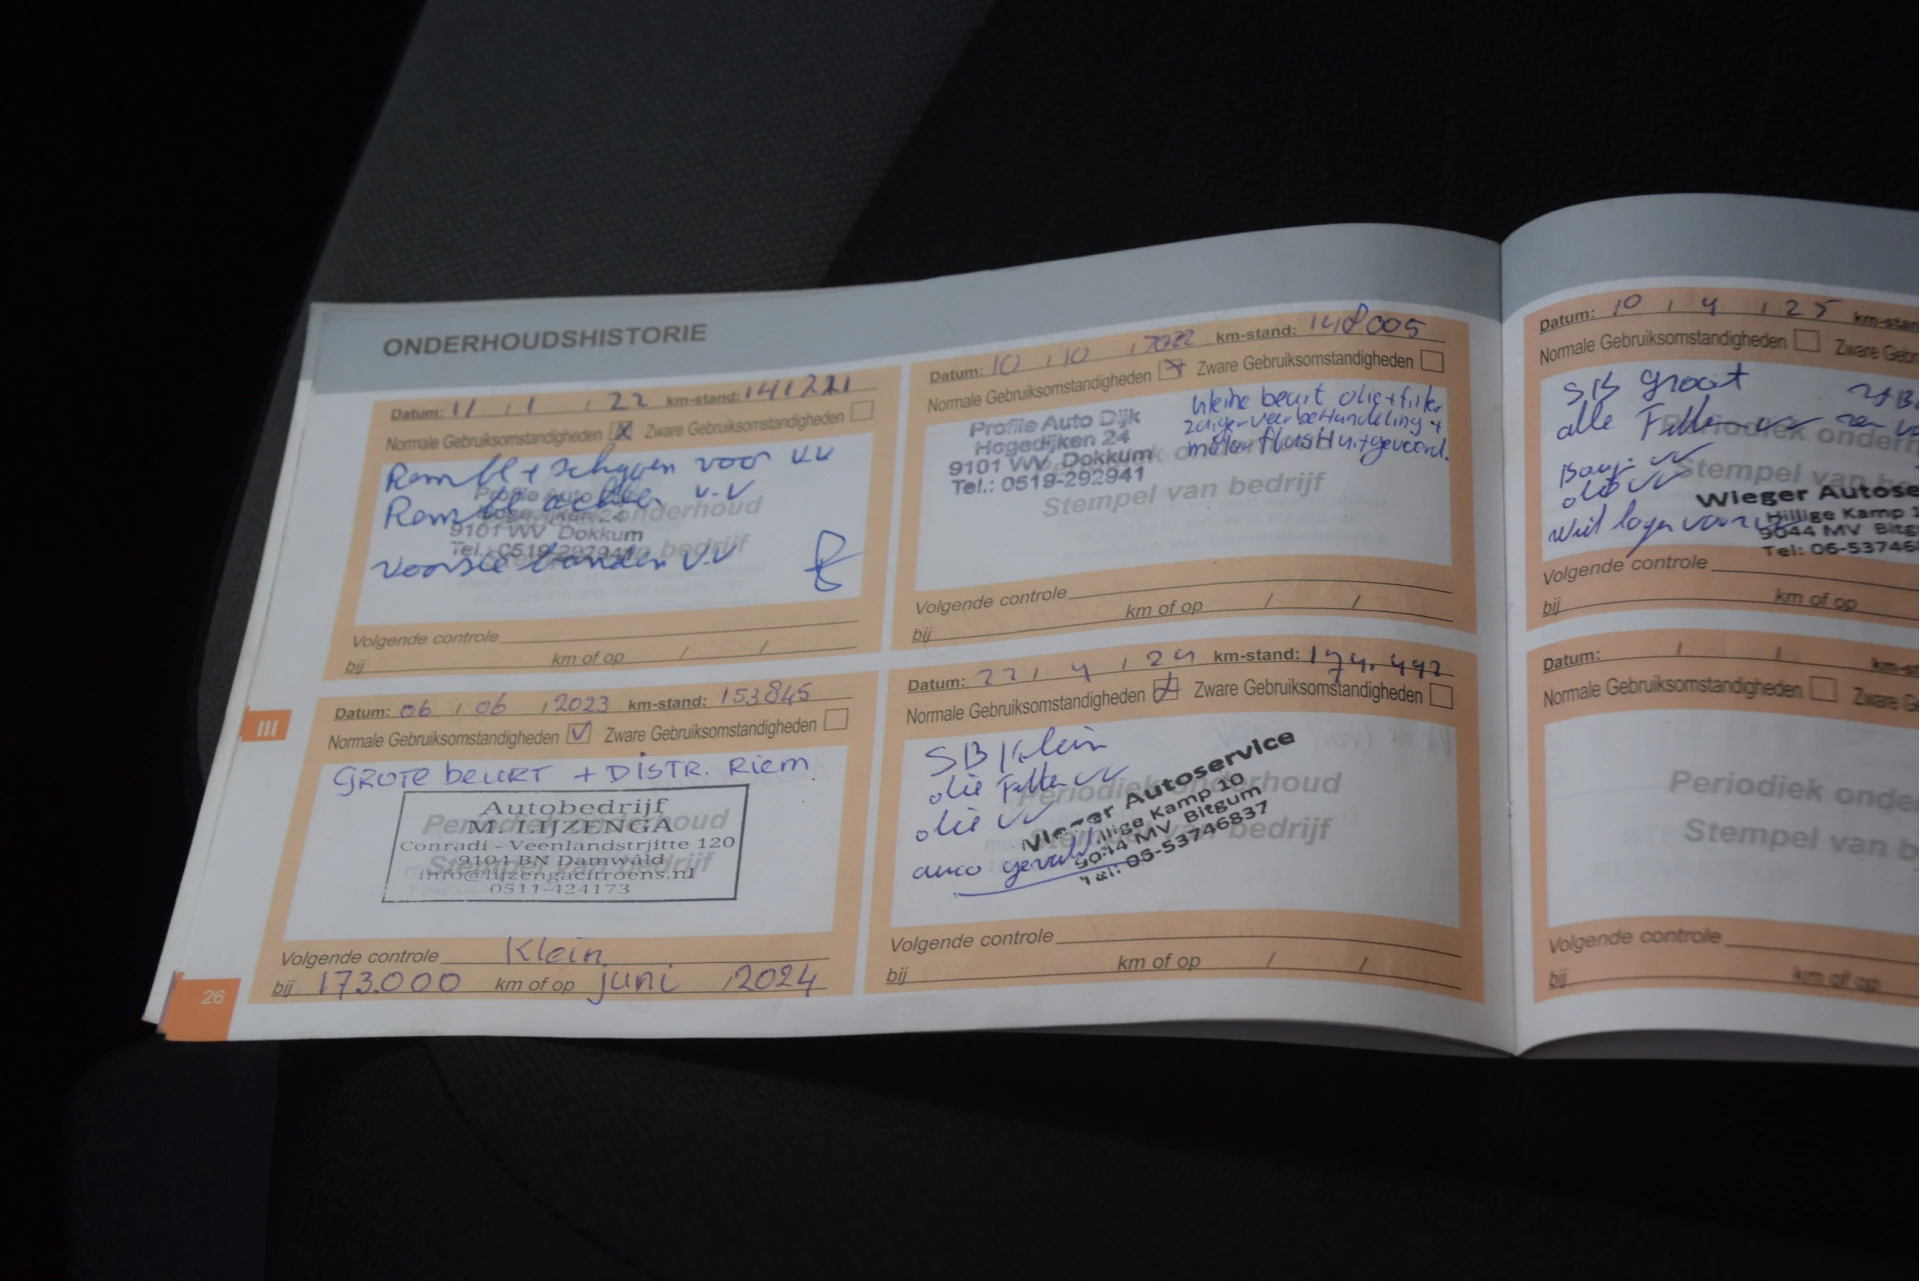 ONDERHOUDSHISTORIE
Datum: 11 / 1 / 22 km-stand: 141221
Normale Gebruiksomstandigheden Zware Gebruiksomstandigheden
Rem bl + schyven voor v.v
Rem bl achter v.v
Profile Auto Dijk
Hogedijken 24
9101 WV Dokkum
Tel.: 0519-292941
voorste banden v.v
Volgende controle
bij km of op / /
Datum: 10 / 10 / 2022 km-stand: 148005
Normale Gebruiksomstandigheden Zware Gebruiksomstandigheden
Profile Auto Dijk
Hogedijken 24
9101 WV Dokkum
Tel.: 0519-292941
kleine beurt olie + filter
zuigerveerbehandeling +
motor flush uitgevoerd.
Stempel van bedrijf
Volgende controle
bij km of op / /
III
Datum: 06 / 06 / 2023 km-stand: 153845
Normale Gebruiksomstandigheden Zware Gebruiksomstandigheden
GROTE BEURT + DISTR. RIEM.
Periodiek onderhoud
Stempel van bedrijf
Autobedrijf
M. LIJZENGA
Conradi - Veenlandstrjitte 120
9104 BN Damwâld
info@lijzengacitroens.nl
0511-424173
Volgende controle Klein
bij 173.000 km of op juni 2024
Datum: 22 / 4 / 24 km-stand: 174.492
Normale Gebruiksomstandigheden Zware Gebruiksomstandigheden
SB Klein
olie Filter vv
olie vv
Periodiek onderhoud
Stempel van bedrijf
Wieger Autoservice
Hillige Kamp 10
9044 MV Bitgum
Tel: 06-53746837
Volgende controle
bij km of op / /
26
Datum: 10 / 4 / 25 km-stand
Normale Gebruiksomstandigheden Zware Gebr
SB groot
alle Filters vv
Bouj. vv
olie vv
Stempel van be
Wieger Autoser
Hillige Kamp 1
9044 MV Bitg
Tel: 06-53746
Volgende controle
bij km of op
Datum: / / km-st
Normale Gebruiksomstandigheden Zware G
Periodiek onde
Stempel van b
Volgende controle
bij km of op